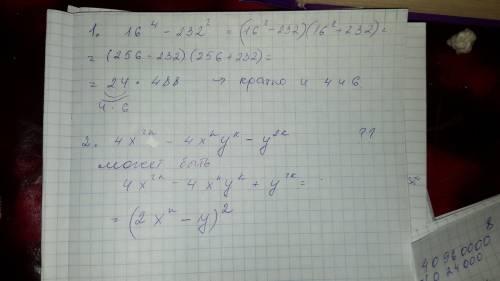 1. 16⁴ - 232² = (16² - 232)(16² + 232) =
= (256 - 232)(256 + 232) =
= 24 · 488 → кратно и 4 и 6
4 · 6
2. 4x²ⁿ - 4xⁿyᵏ - y²ᵏ ??
может быть
4x²ⁿ - 4xⁿyᵏ + y²ᵏ =
= (2xⁿ - y)²
8
40960000
1024000